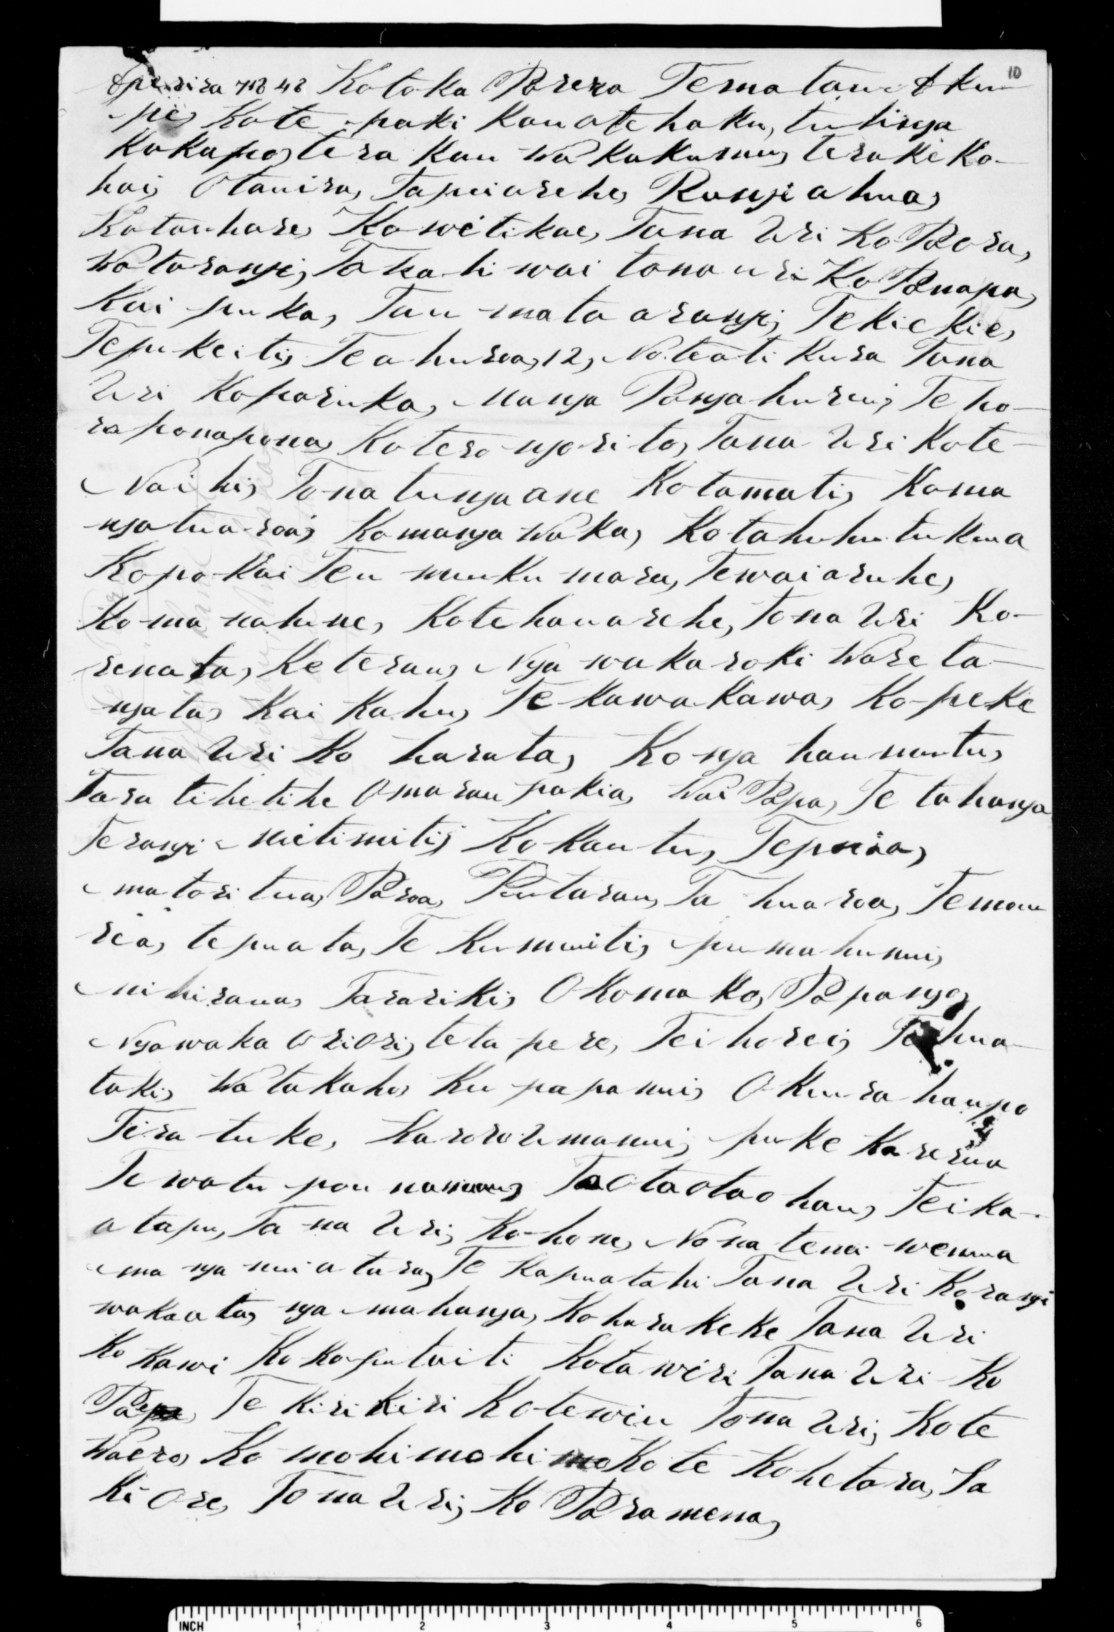 10
Aperira 718 48 Kotoka Porera Tematau o tku
pe, Kote paki Kau ate haku, tutinga
Kakapo, tera Kau Wakakumu, teraki Ko-
hai, Otauira, Tapuiarehe, Rangiahua,
Kotauhare, Kowetikae, Tana Uri Ko Paora,
Watarangi, Takahiwai tona uri Ko Panapa,
Kai puka, Tau mata arangi, Tekiekie,
Tepukeiti, Te ahuroa, 12, Noteati Kura Tana
Uri Koparuka, Manga Pangahurui, Te ho-
raponapona, Kotero ngorito, Tana Uri Kote
Naihi, Tona tungaane Kotamati, Koma
ngatuaroa, Komanga Waka, Kotahuhutukua
Kopokai Teu muku mara, Tewaiaruhe,
Koma nahine, Kotehauarehe, Tona Uri Ko-
renata, Keterau, Nga wakaroki Wareta-
ngata, Kai Kahu, Te Kawakawa, Kopeke
Tana Uri Ko harata, Konga haumutu,
Tara tihetihe Omarau pakia, Wai Papa, Te tahanga
Terangi mitimiti, Kokautu, Tepuia,
matoritua, Paroa, Putarau, Ta huaroa, Temau
rea, tepuata, Te Kumuiti, pumahunui,
mihiraua, Tarariki, Okomako, Papango,
Ngawaka oriori, tetapere, Teihorei, Te hua-
taki, Watukaho, Ku papa nui, Okura haupo
Tiratuke, Karoro Umanui, puke Karerua
Te watu pou namu, Taotaotaohau, Teika-
atapu, Tana Uri, Ko hone, Nona tenei wenua
ma nga mi atura, Te Kapuatahi Tana Uri Korangi
wakaata, nga mahanga, Koharakeke Tana Uri
Ko Kawi Kokoputaiti Kotawiri Tana Uri Ko
Te Kirikiri Kotewiu Tona Uri, Kote
Waero, Ko mohimohi Kote Kohetara, Ta
Kiore, Tona Uri, Ko Paramena,
INCH 1 2 3 4 5 6